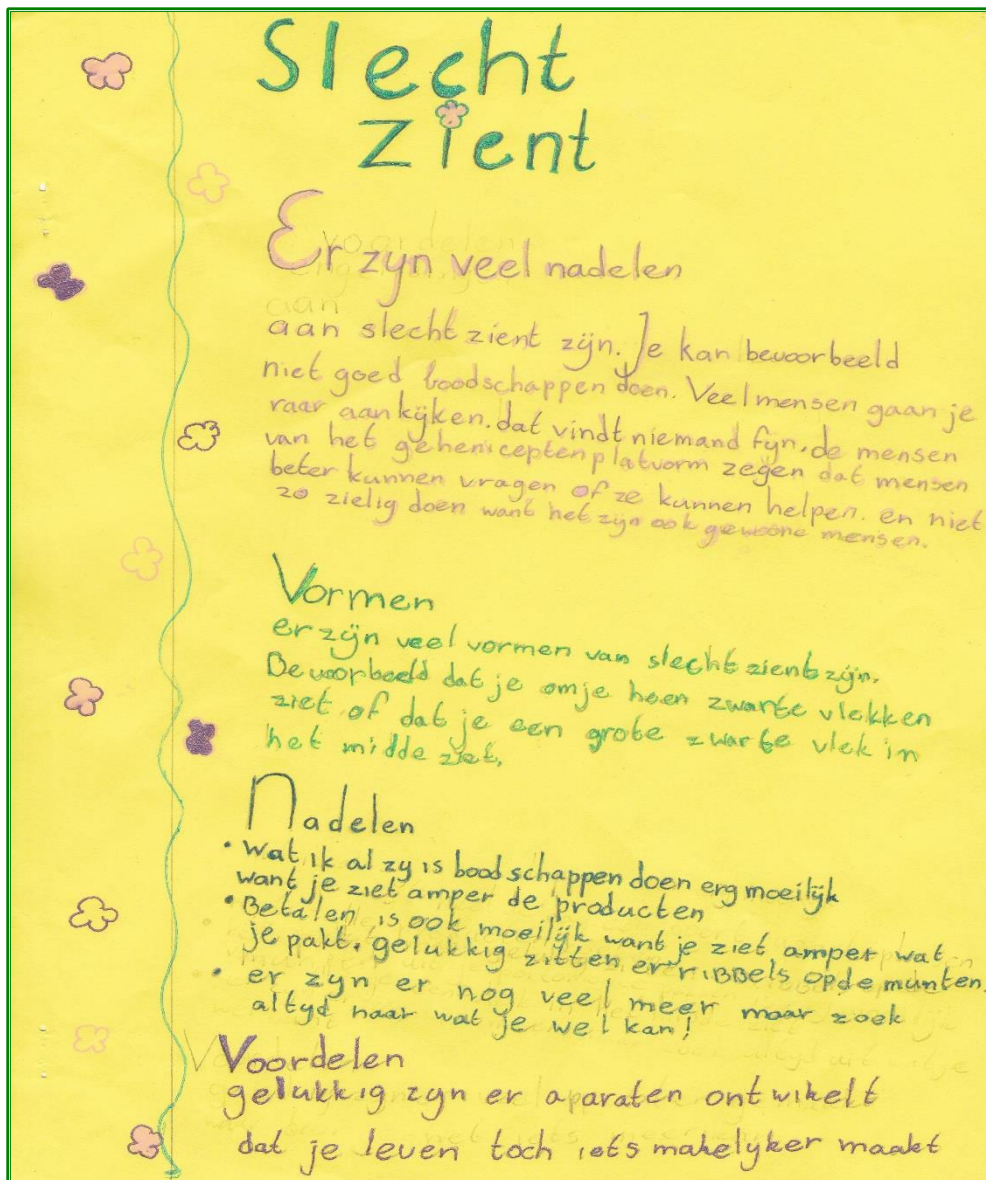 Slecht
zient
Er zyn veel nadelen
aan slecht zient zijn. Je kan bevoorbeeld
niet goed boodschappen doen. Veel mensen gaan je
raar aan kijken. dat vindt niemand fijn. de mensen
van het geheniceptenplatvorm zegen dat mensen
beter kunnen vragen of ze kunnen helpen. en niet
zo zielig doen want het zijn ook gewoone mensen.
Vormen
er zijn veel vormen van slecht zient zijn.
Bevoorbeeld dat je om je heen zwarte vlekken
ziet of dat je een grote zwarte vlek in
het midde ziet.
Nadelen
• Wat ik al zy is boodschappen doen erg moeilijk
want je ziet amper de producten
• Betalen is ook moeilijk want je ziet amper wat
je pakt. gelukkig zitten er ribbels op de munten.
• er zyn er nog veel meer maar zoek
altyd naar wat je wel kan!
Voordelen
gelukkig zyn er aparaten ontwikelt
dat je leven toch iets makelyker maakt